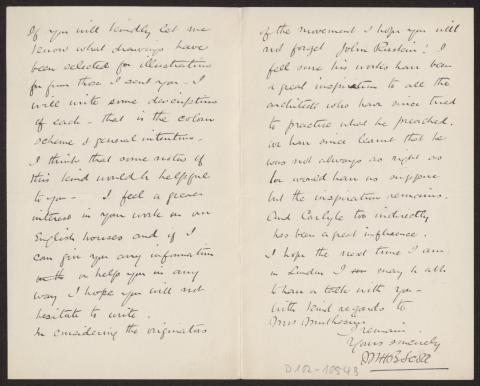 If you will kindly let me
know what drawings have
been selected for illustrations
from those I sent you. I
will write some descriptions
of each - that is the colour
scheme & general intention.
I think that some notes of
this kind would be helpful
to you - I feel a great
interest in your work on our
English houses and if I
can give you any information
or help you in any
way I hope you will not
hesitate to write.
In considering the originators
of the movement I hope you will
not forget John Ruskin! I
feel sure his works have been
a great inspiration to all the
architects who have since tried
to practise what he preached.
We have since learnt that he
was not always as right as
he would have us suppose
but the inspiration remains.
And Carlyle too indirectly
has been a great influence.
I hope the next time I am
in London I may be able
to have a talk with you -
with kind regards to
Mrs Muthesius
I remain
Yours sincerely
MHBScott
D102-10943